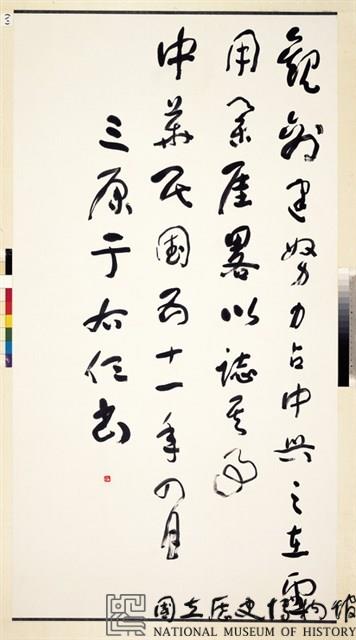 觀創建努力占中興之在
用厓畧以誌其
中華民國五十一年四月
三原于右任書
國立歷史博物館
NATIONAL MUSEUM OF HISTORY